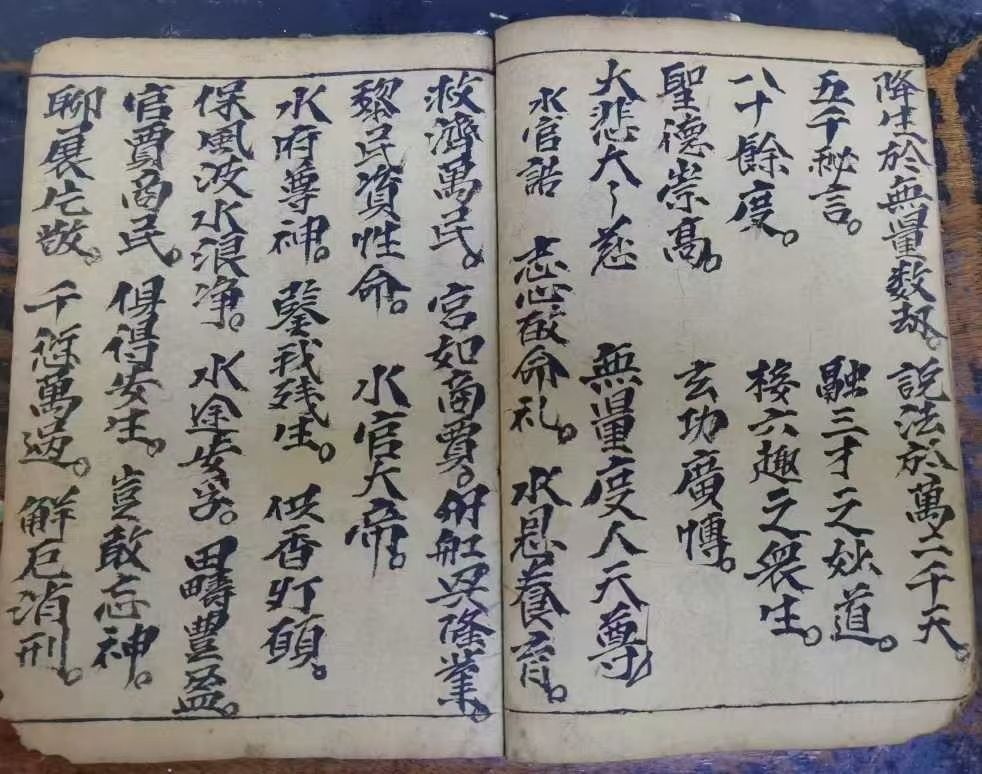 降生於無量数劫。説法於萬二千天。
五千秘言。融三才之妙道。
八十餘度。接六趣之衆生。
聖德崇髙。玄功廣博。
大悲大〻慈 無量度人天尊
水官誥 志心皈命礼。水恩養育。
救濟萬民。宮如商賈。舟舡興隆業。
黎民資性命。水官大帝。
水府尊神。鑒我残生。供香灯願。
保風波水浪净。水途安寧。田疇豊盈。
官賈商民。俱得安生。豈敢忘神。
聊展片敬。千愆萬過。解厄消刑。